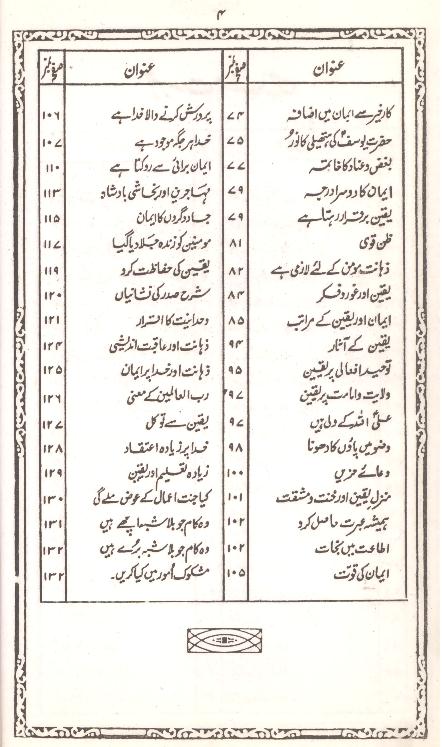 ۴
عنوان صفحہ نمبر
کارِ خیر سے ایمان میں اضافہ ۷۴
حضرت یوسفؑ کی ہتھیلی کا نور ۷۵
بغض و عناد کا خاتمہ ۷۷
ایمان کا دوسرا درجہ ۷۹
یقین برقرار رہتا ہے ۷۹
ظن قوی ۸۱
ذہانت مومن کے لئے لازمی ہے ۸۲
یقین اور غور و فکر ۸۴
ایمان اور یقین کے مراتب ۸۵
یقین کے آثار ۹۴
توحید افعالی پر یقین ۹۵
ولایت و امامت پر یقین ۹۷
علیؑ اللہ کے ولی ہیں ۹۷
وضو میں پاؤں کا دھونا ۹۸
دعائے حزیں ۱۰۰
منزلِ یقین اور محنت و مشقت ۱۰۱
ہمیشہ عبرت حاصل کرو ۱۰۲
اطاعت میں نجات ۱۰۲
ایمان کی قوت ۱۰۵
عنوان صفحہ نمبر
پرورش کرنے والا خدا ہے ۱۰۶
خدا ہر جگہ موجود ہے ۱۰۷
ایمان برائی سے روکتا ہے ۱۱۰
مہاجرین اور نجاشی بادشاہ ۱۱۳
جادوگروں کا ایمان ۱۱۵
مومنین کو زندہ جلا دیا گیا ۱۱۷
یقین کی حفاظت کرو ۱۱۹
شرح صدر کی نشانیاں ۱۲۰
وحدانیت کا اقرار ۱۲۱
ذہانت اور عاقبت اندیشی ۱۲۴
ذہانت اور خدا پر ایمان ۱۲۵
رب العالمین کے معنی ۱۲۶
یقین سے توکل ۱۲۷
خدا پر زیادہ اعتقاد ۱۲۸
زیادہ تعلیم اور یقین ۱۲۹
کیا جنت اعمال کے عوض ملے گی ۱۳۰
وہ کام جو بلا شبہ اچھے ہیں ۱۳۱
وہ کام جو بلا شبہ بُرے ہیں ۱۳۲
مشکوک اُمور میں کیا کریں۔ ۱۳۲